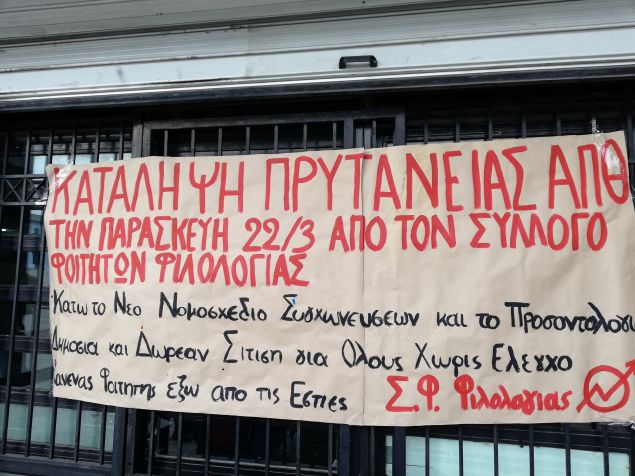 ΚΑΤΑΛΗΨΗ ΠΡΥΤΑΝΕΙΑΣ ΑΠΟ
ΤΗΝ ΠΑΡΑΣΚΕΥΗ 22/3 ΑΠΟ ΤΟΝ ΣΥΛΛΟΓΟ
ΦΟΙΤΗΤΩΝ ΦΙΛΟΛΟΓΙΑΣ
·Κατω το Νεο Νομοσχεδιο Συγχωνευσεων και το Προσοντολογι
Δημοσια και Δωρεαν Σιτιση για Ολους Χωρις Ελεγχο
Κανενας Φοιτητης εξω απο τις Εστιες
Σ.Φ. Φιλολογιας